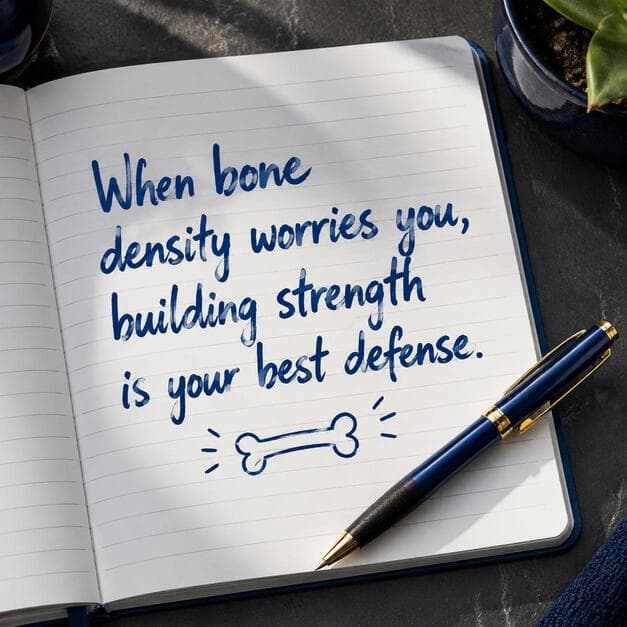 When bone
density worries you,
building strength
is your best defense.